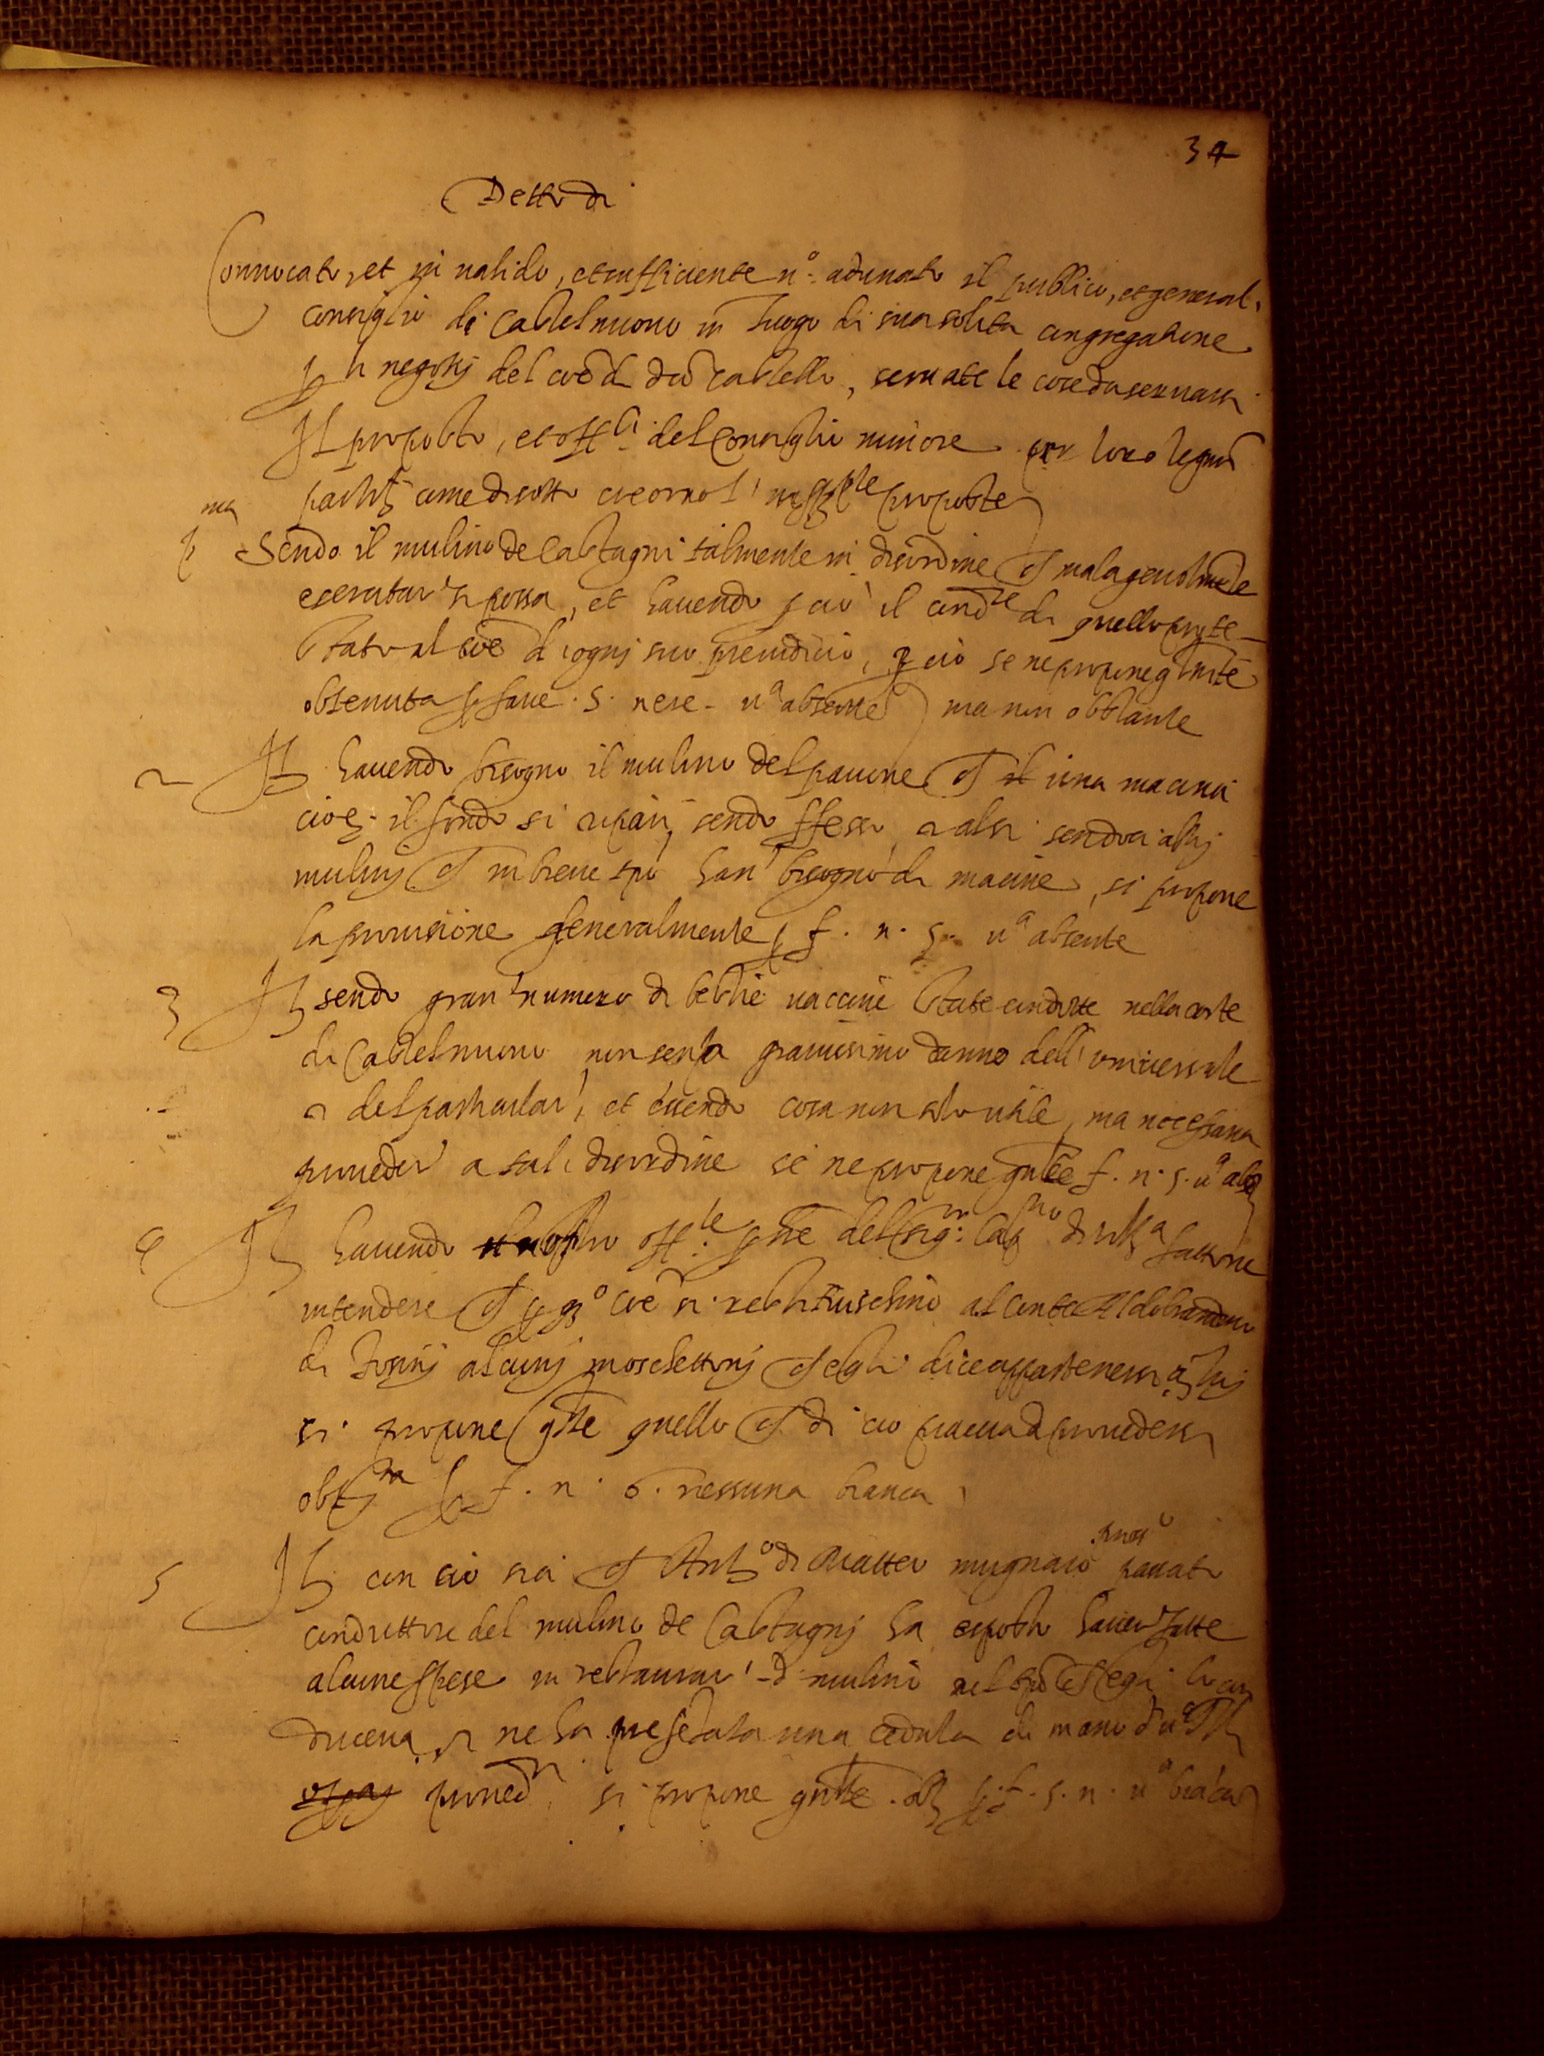 34
Detto di
Convocato, et in valido, et sufficiente n.º adunato il publico, et general
consiglio di Castelnuovo in luogo di sua solita congregatione
p li negotij del coê d dto Castello, servate le cose da servarsi
Il proposto, et off.li del Consiglio minore per loro legmi
partiti come di sotto
ma
p Sendo il mulino de Castagni talmente in disordine ch malagevolmte
esercitar si possa, et havendo p ciò il condre di quello prote-
stato al coê d'ogni suo preiudicio, p ciò se ne propone gnlmte
obtenuta p fave 5 nere - uª absente ma non obstante
2 It havendo bisogno il mulino del pavone ch il una macina
cioè il fondo si ripari, sendo fesso, et altri sendoci altri
mulinj ch in breve tpo han' bisogno di macine, si propone
la provisione generalmente p f. n. 5. uª absente
3 It sendo gran' numero di bestie vaccine state condotte nella corte
di Castelnuovo non senza gravissimo danno dell' universale
et del particular', et essendo cosa non solo utile, ma necessaria
proveder' a tal' disordine si ne propone gnlte f. n. 5. uª abs
4 It havendo off.le del Sig.r fattone
intendere ch p qsº coê si restituischino al Conte Aldobrandino
di alcunj moschettonj ch egli dice appartenersi à luj
si propone gnlte quello ch di ciò piaccia d provedersi
obtta p f. n. 6. nessuna bianca
5 It con ciò sia ch Antº di Matteo mugnaio passato
conduttore del mulino de Castagnj ha esposto haver' fatte
alcune spese in restaurar' d mulino nel tpo ch egli lo con
duceva, et ne ha presetata una cedula di mano d'uº
proved si propone gnlte. p f. 5. n. uª biaca